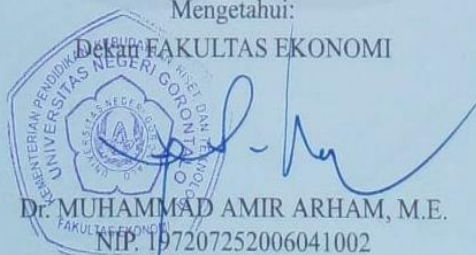 Mengetahui:
Dekan FAKULTAS EKONOMI
KEMENTERIAN PENDIDIKAN KEBUDAYAAN RISET DAN TEKNOLOGI
UNIVERSITAS NEGERI GORONTALO
UNIVERSITAS NEGERI GORONTALO
FAKULTAS EKONOMI
Dr. MUHAMMAD AMIR ARHAM, M.E.
NIP. 197207252006041002